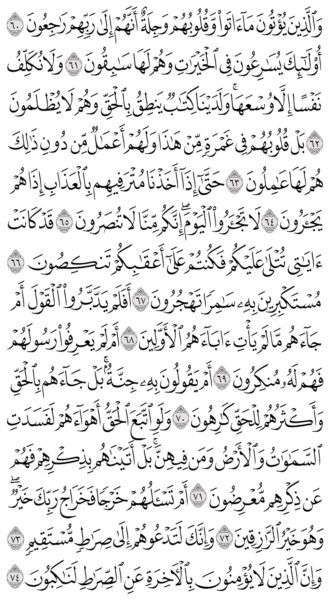 وَٱلَّذِينَ يُؤۡتُونَ مَآ ءَاتَواْ وَّقُلُوبُهُمۡ وَجِلَةٌ أَنَّهُمۡ إِلَىٰ رَبِّهِمۡ رَٰجِعُونَ ٦٠
أُوْلَٰٓئِكَ يُسَٰرِعُونَ فِي ٱلۡخَيۡرَٰتِ وَهُمۡ لَهَا سَٰبِقُونَ ٦١ وَلَا نُكَلِّفُ
نَفۡسًا إِلَّا وُسۡعَهَاۚ وَلَدَيۡنَا كِتَٰبٞ يَنطِقُ بِٱلۡحَقِّ وَهُمۡ لَا يُظۡلَمُونَ
٦٢ بَلۡ قُلُوبُهُمۡ فِي غَمۡرَةٖ مِّنۡ هَٰذَا وَلَهُمۡ أَعۡمَٰلٞ مِّن دُونِ ذَٰلِكَ
هُمۡ لَهَا عَٰمِلُونَ ٦٣ حَتَّىٰٓ إِذَآ أَخَذۡنَا مُتۡرَفِيهِم بِٱلۡعَذَابِ إِذَا هُمۡ
يَجۡـَٔرُونَ ٦٤ لَا تَجۡـَٔرُواْ ٱلۡيَوۡمَۖ إِنَّكُم مِّنَّا لَا تُنصَرُونَ ٦٥ قَدۡ كَانَتۡ
ءَايَٰتِي تُتۡلَىٰ عَلَيۡكُمۡ فَكُنتُمۡ عَلَىٰٓ أَعۡقَٰبِكُمۡ تَنكِصُونَ ٦٦
مُسۡتَكۡبِرِينَ بِهِۦ سَٰمِرٗا تَهۡجُرُونَ ٦٧ أَفَلَمۡ يَدَّبَّرُواْ ٱلۡقَوۡلَ أَمۡ
جَآءَهُم مَّا لَمۡ يَأۡتِ ءَابَآءَهُمُ ٱلۡأَوَّلِينَ ٦٨ أَمۡ لَمۡ يَعۡرِفُواْ رَسُولَهُمۡ
فَهُمۡ لَهُۥ مُنكِرُونَ ٦٩ أَمۡ يَقُولُونَ بِهِۦ جِنَّةُۢۚ بَلۡ جَآءَهُم بِٱلۡحَقِّ
وَأَكۡثَرُهُمۡ لِلۡحَقِّ كَٰرِهُونَ ٧٠ وَلَوِ ٱتَّبَعَ ٱلۡحَقُّ أَهۡوَآءَهُمۡ لَفَسَدَتِ
ٱلسَّمَٰوَٰتُ وَٱلۡأَرۡضُ وَمَن فِيهِنَّۚ بَلۡ أَتَيۡنَٰهُم بِذِكۡرِهِمۡ فَهُمۡ
عَن ذِكۡرِهِم مُّعۡرِضُونَ ٧١ أَمۡ تَسۡـَٔلُهُمۡ خَرۡجٗا فَخَرَاجُ رَبِّكَ خَيۡرٞۖ
وَهُوَ خَيۡرُ ٱلرَّٰزِقِينَ ٧٢ وَإِنَّكَ لَتَدۡعُوهُمۡ إِلَىٰ صِرَٰطٖ مُّسۡتَقِيمٖ ٧٣
وَإِنَّ ٱلَّذِينَ لَا يُؤۡمِنُونَ بِٱلۡأٓخِرَةِ عَنِ ٱلصِّرَٰطِ لَنَٰكِبُونَ ٧٤